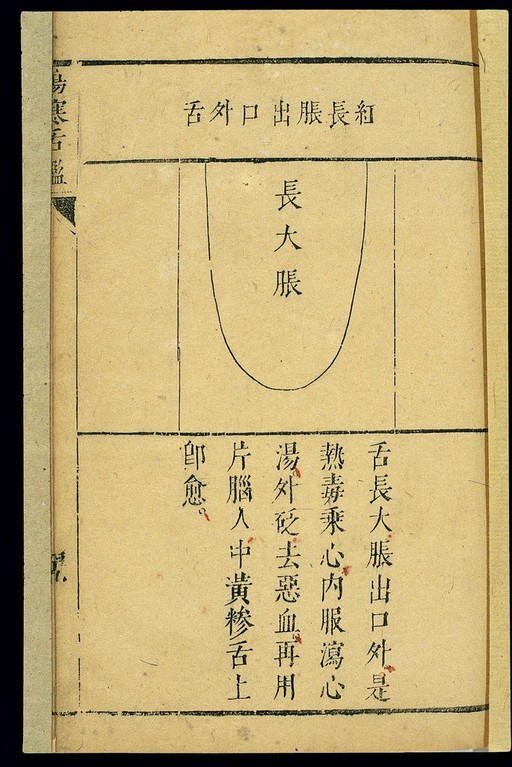 紅長脹出口外舌
長大脹
舌長大脹出口外是
熱毒乘心內服瀉心
湯外砭去惡血再用
片腦人中黄糝舌上
卽愈。
傷寒舌鑑